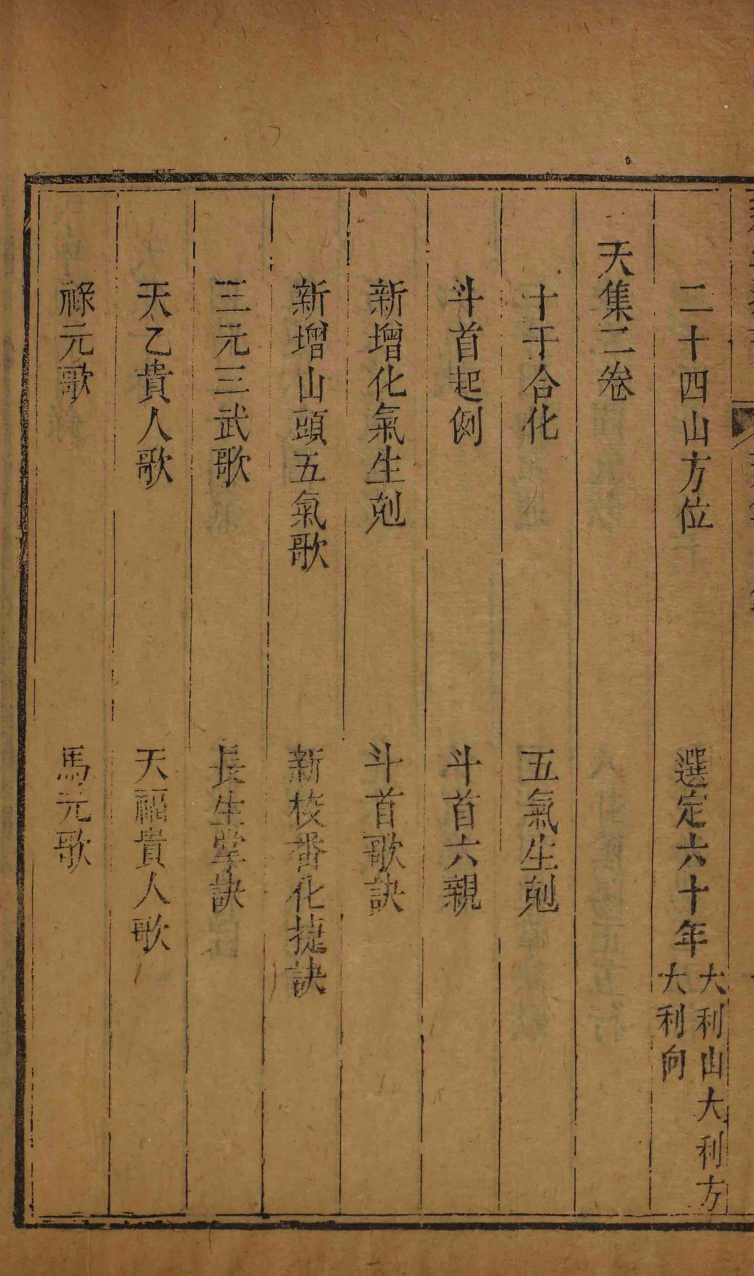 二十四山方位　選定六十年大利山大利方大利向
天集二卷
十干合化　五氣生剋
斗首起例　斗首六親
新增化氣生剋　斗首歌訣
新增山頭五氣歌　新校番化捷訣
三元三武歌　長生掌訣
天乙貴人歌　天福貴人歌
祿元歌　馬元歌